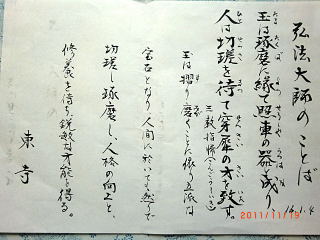 弘法大師のことば
16.1.4
玉は琢磨に縁て照車の器と成り
人は切瑳を待て穿犀の才を致す。
三教指帰
玉は摺り磨くことに依り立派な
宝石となり、人間に於いても然りで
切瑳し琢磨し、人格の向上と、
修養を待ち鋭敏な才能を得る。
東寺
2011/11/19